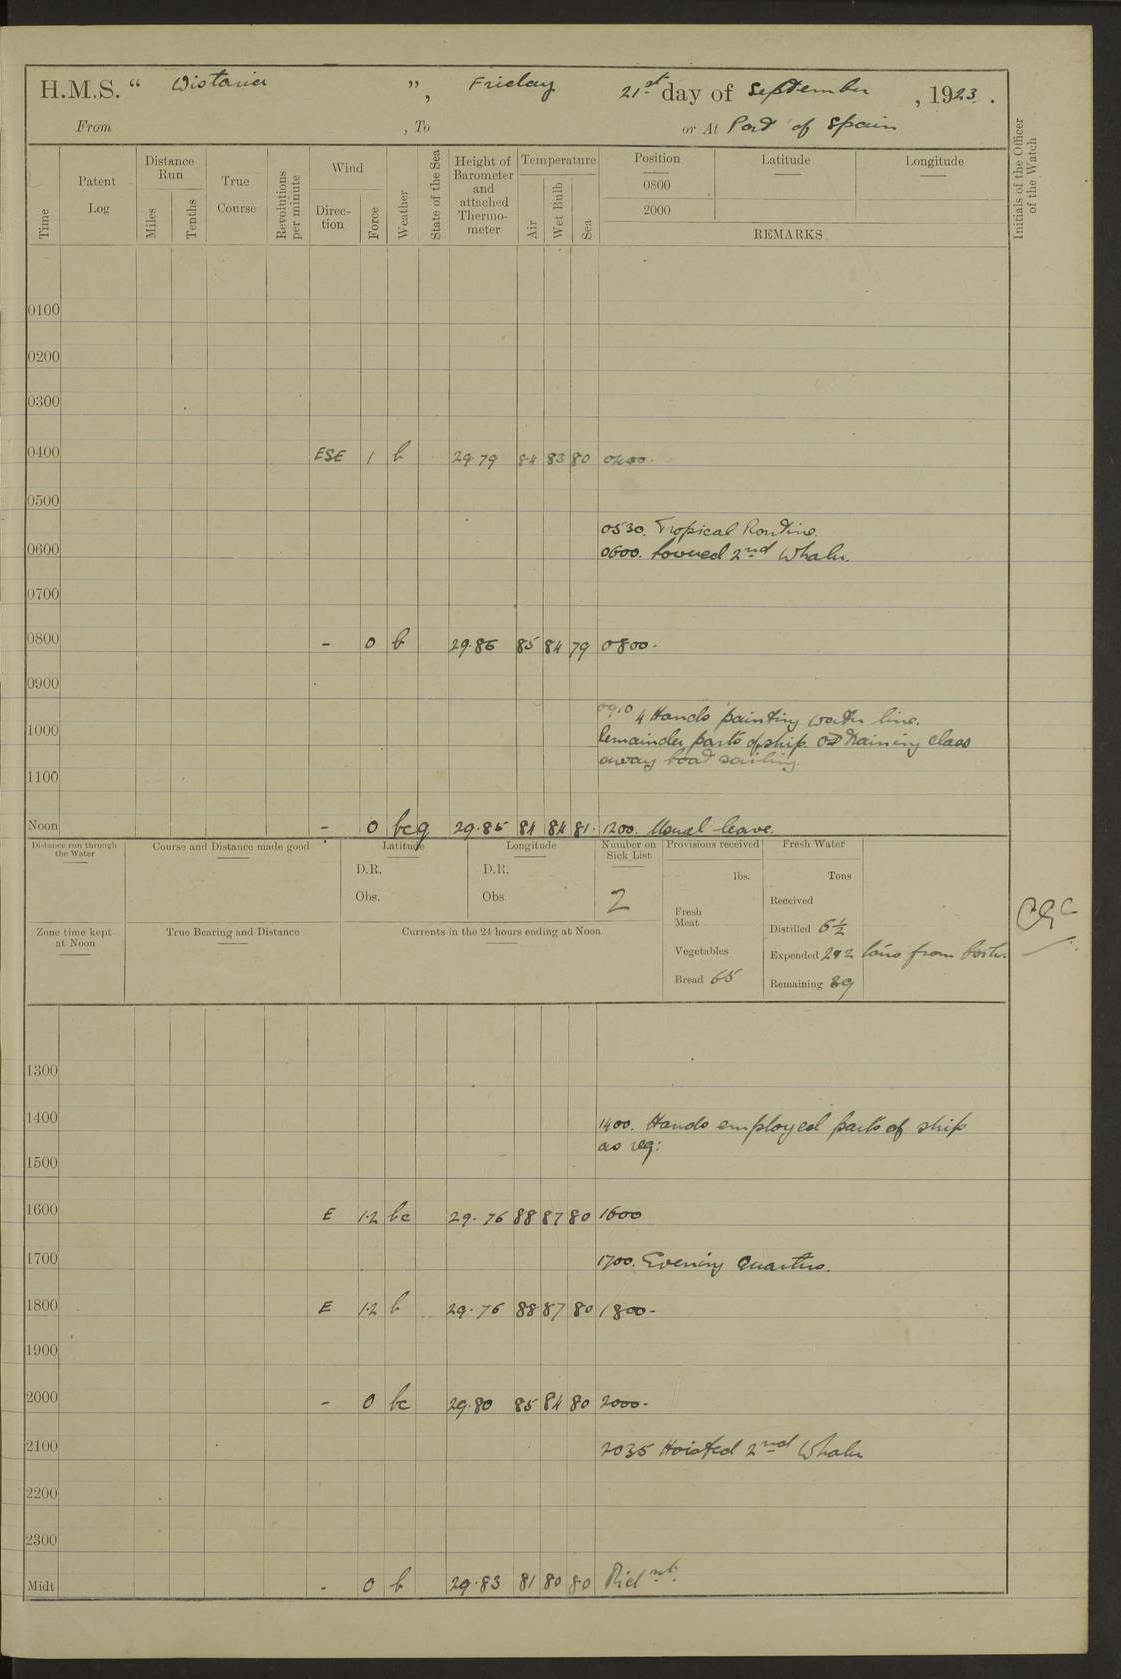 H.M.S. “ Wistaria ”, Friday 21st day of September, 1923.
From , To or At Port of Spain
Time
Patent Log
Distance Run
Miles
Tenths
True Course
Revolutions per minute
Wind
Direction
Force
Weather
State of the Sea
Height of Barometer and attached Thermometer
Temperature
Air
Wet Bulb
Sea
Position
0800
2000
Latitude
Longitude
REMARKS
Initials of the Officer of the Watch
0100
0200
0300
0400 ESE 1 b 29.79 84 83 80 0400.
0500
0530. Tropical Routine.
0600 0600. Lowered 2nd Whaler.
0700
0800 - 0 b 29.86 85 84 79 0800.
0900
0910 4 Hands painting water line.
1000 Remainder parts of ship. OD Training Class
away boat sailing.
1100
Noon - 0 bcq 29.85 84 84 81. 1200. Usual leave.
Distance run through the Water
Course and Distance made good
Latitude
D.R.
Obs.
Longitude
D.R.
Obs
Number on Sick List
2
Provisions received
lbs.
Fresh Meat
Vegetables
Bread 65
Fresh Water
Tons
Received
Distilled 6½
Expended tons from
Remaining 89
Zone time kept at Noon
True Bearing and Distance
Currents in the 24 hours ending at Noon
1300
1400 1400. Hands employed parts of ship
as req:
1500
1600 E 1.2 bc 29.76 88 87 80 1600
1700 1700. Evening Quarters.
1800 E 1.2 b 29.76 88 87 80 1800.
1900
2000 - 0 bc 29.80 85 84 80 2000.
2100 2035 Hoisted 2nd Whaler
2200
2300
Midt - 0 b 29.83 81 80 80 Mid nt.